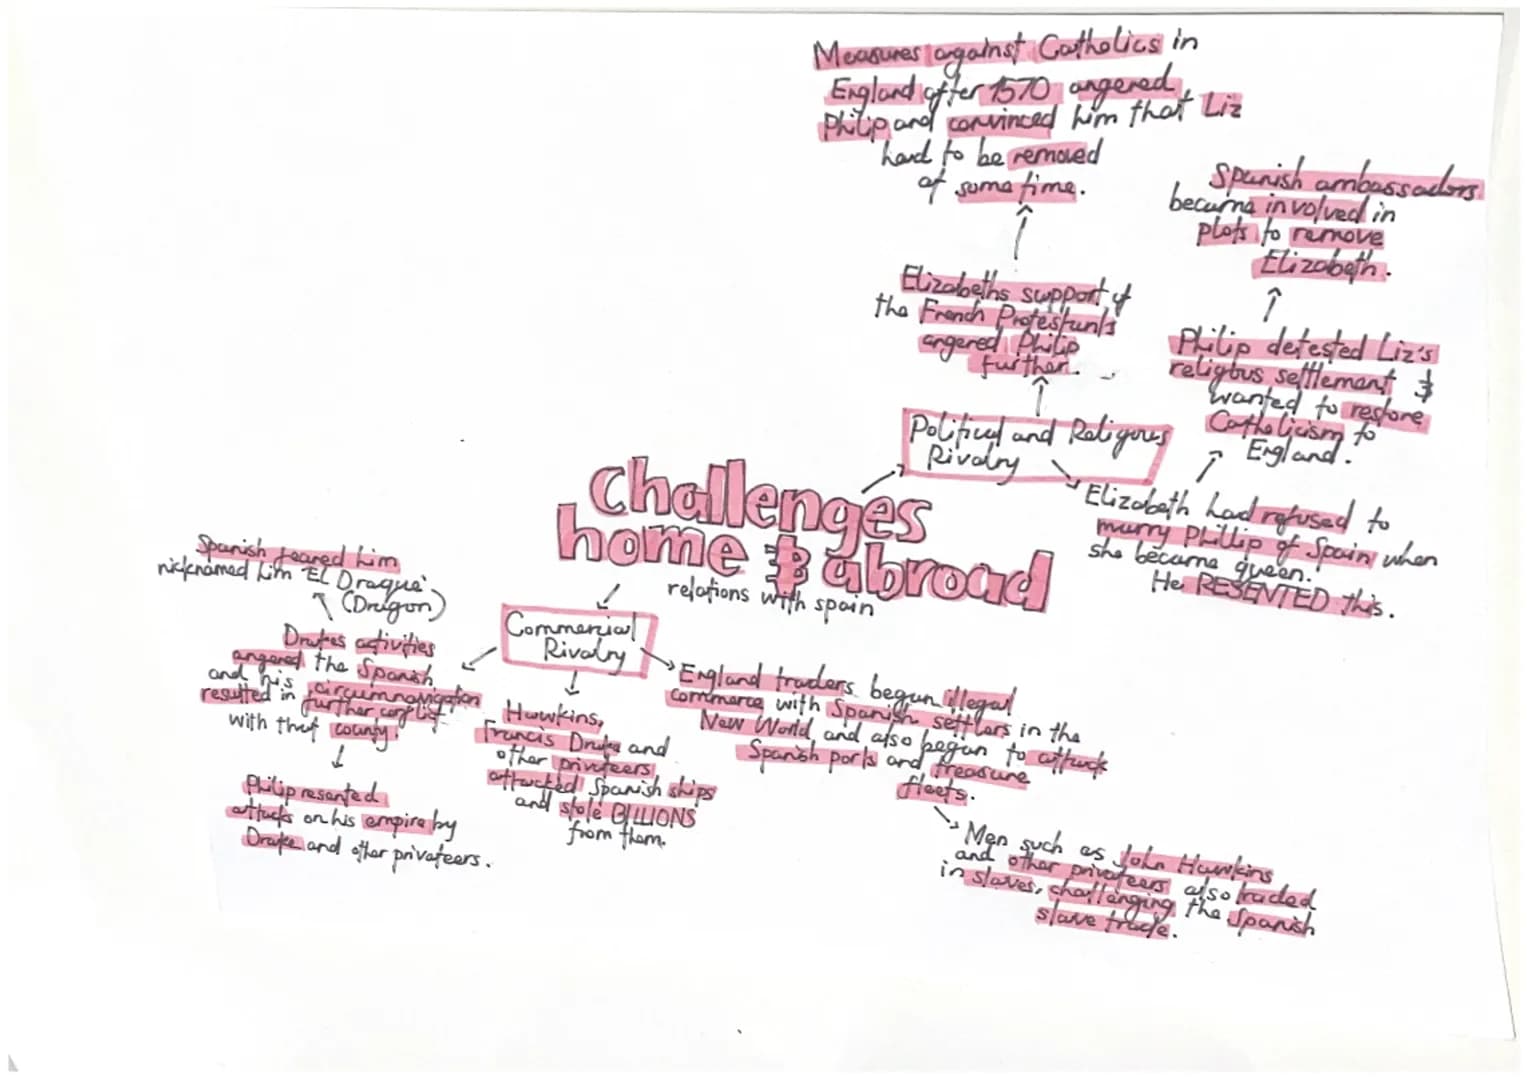 Measures against Catholics in
England after 1570 angered
Philip and convinced him that Liz
had to be removed
at some time.
Spanish ambassadors
became involved in
plots to remove
Elizabeth.
Elizabeths support of
the French Protestants
angered Philip
further.
Philip detested Liz's
religious settlement &
wanted to restore
Catholicism to
England.
Political and Religious
Rivalry
Elizabeth had refused to
marry Phillip of Spain when
she became queen.
He RESENTED this.
Challenges
home & abroad
relations with spain
Spanish feared him
nicknamed him 'El Draque'
(Dragon)
Drakes activities
angered the Spanish
and his circumnavigation
resulted in further conflict
with that county.
Philip resented
attacks on his empire by
Drake and other privateers.
Commercial
Rivalry
Hawkins,
Francis Drake and
other privateers
attacked Spanish ships
and stole BILLIONS
from them.
England traders began illegal
commerce with Spanish settlers in the
New World and also began to attack
Spanish ports and treasure
fleets.
Men such as John Hawkins
and other privateers also traded
in slaves, challenging the Spanish
slave trade.